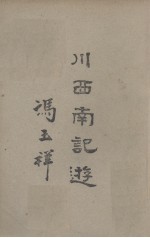 川西南記遊
馮玉祥